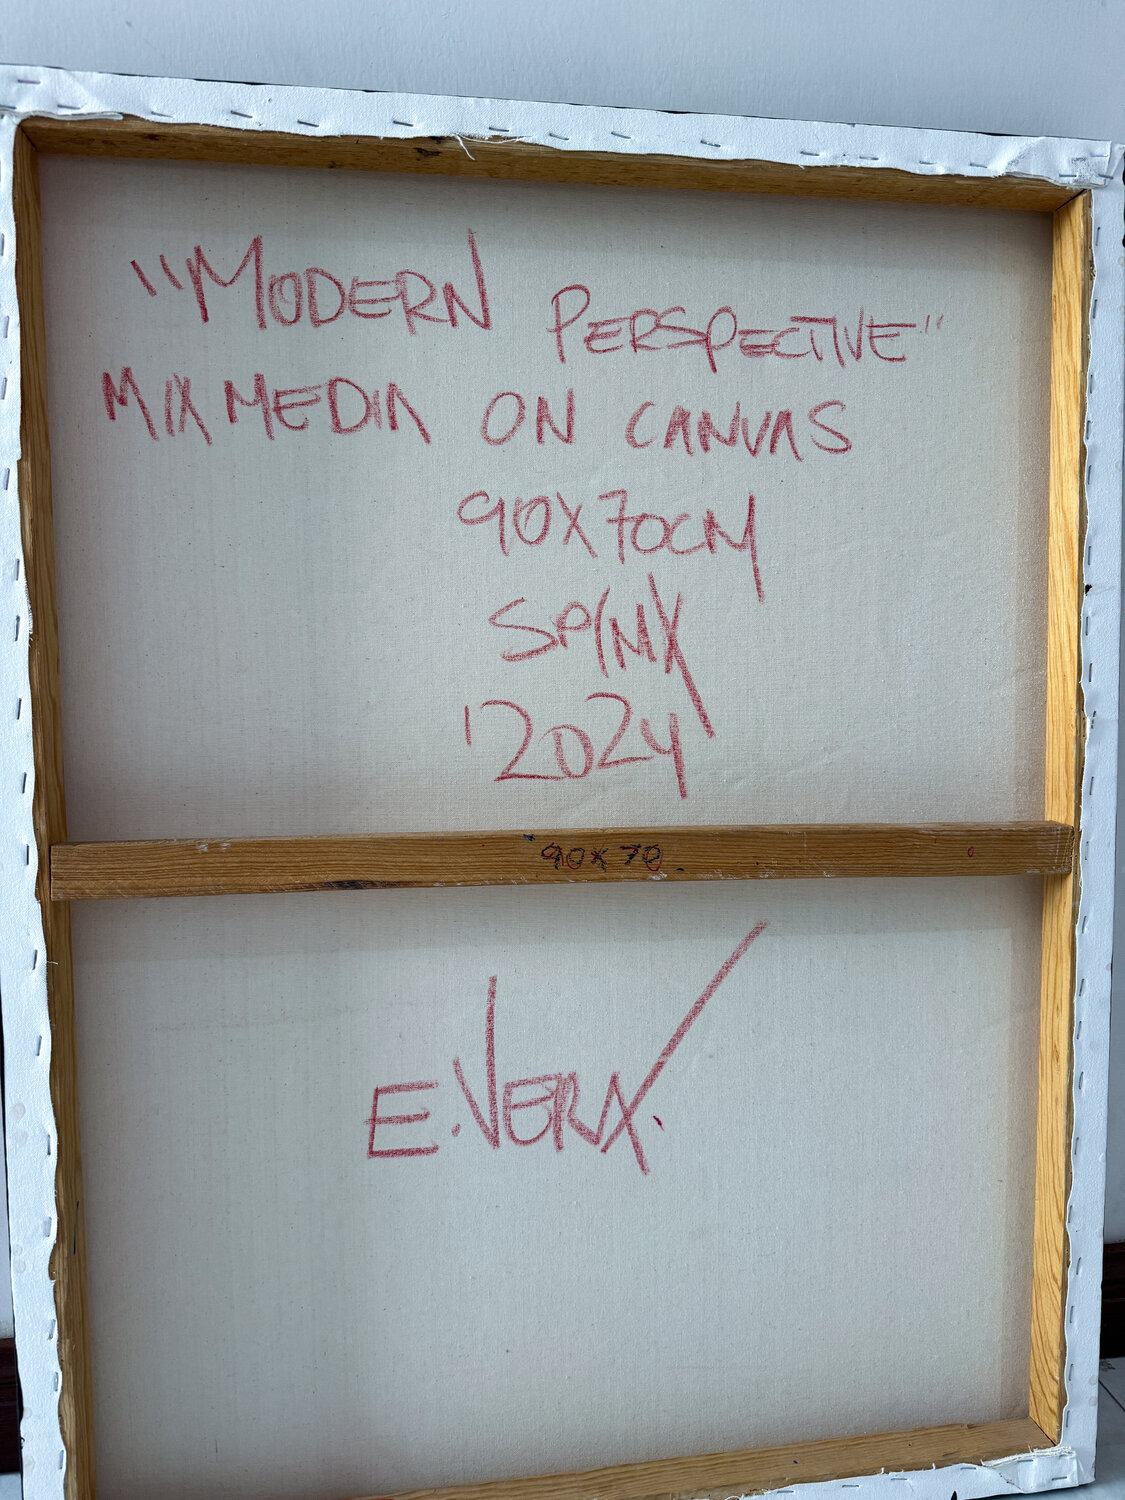 "MODERN PERSPECTIVE"
MIXMEDIA ON CANVAS
90X70CM
'2024
90x70
E.VERA.